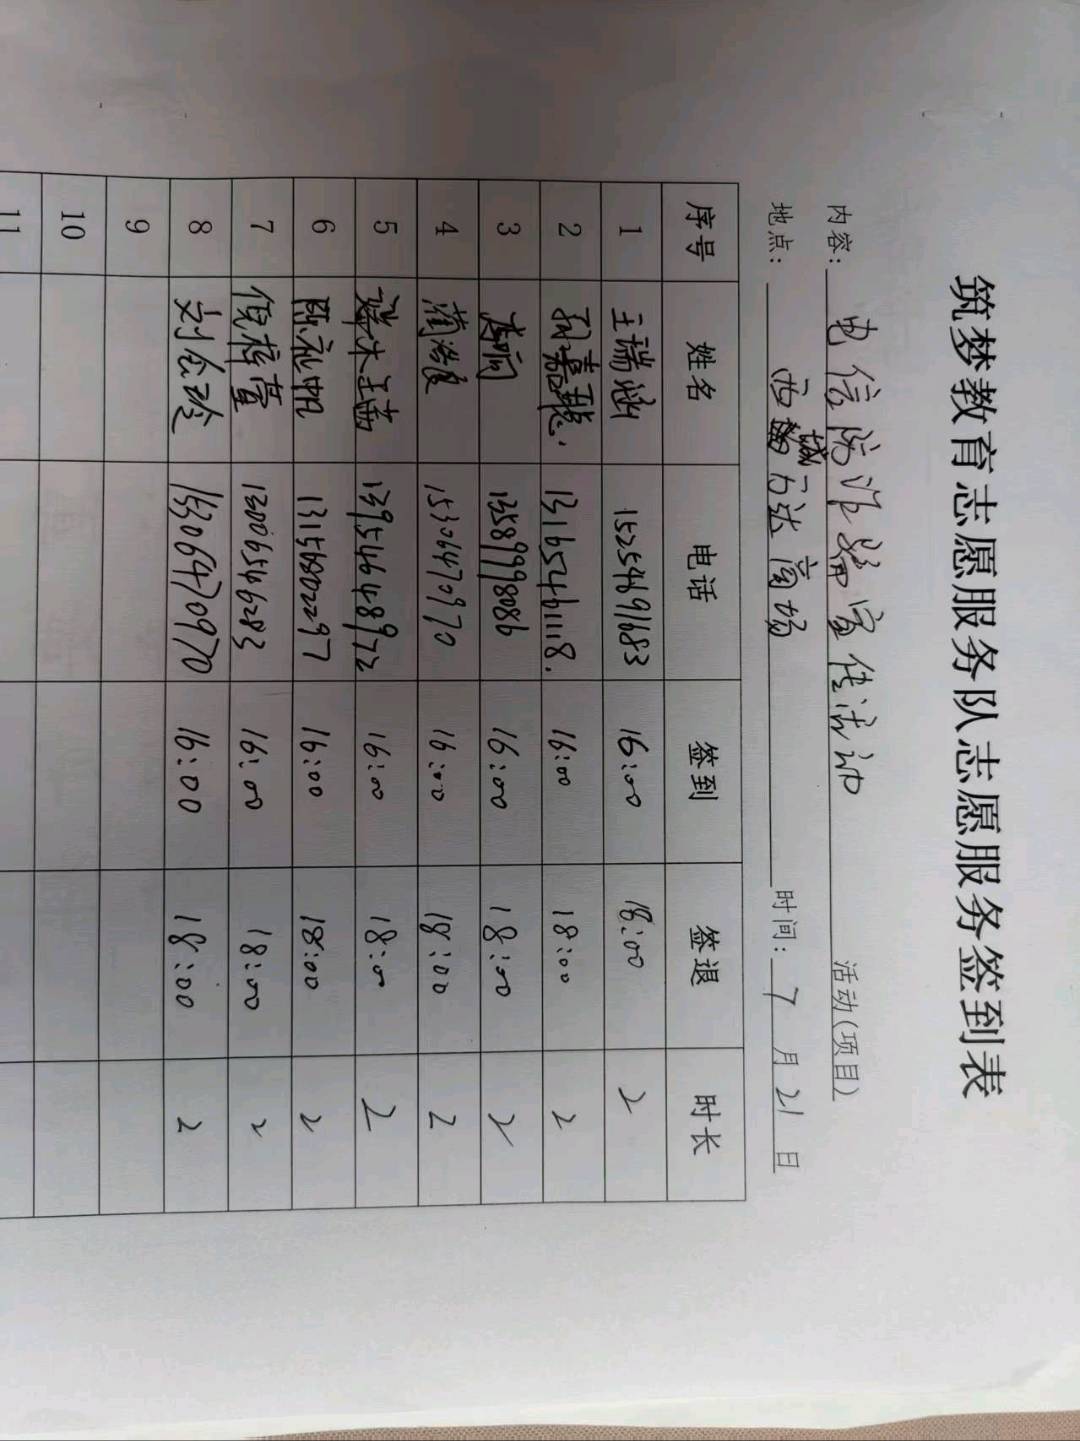 筑梦教育志愿服务队志愿服务签到表
内容: 电信防诈骗宣传活动 活动(项目)
地点: 西城万达商场 时间: 7 月 21 日
序号 姓名 电话 签到 签退 时长
1 王瑞涵 15254691683 16:00 18:00 2
2 孙嘉聪 13165461118. 16:00 18:00 2
3 13589998086 16:00 18:00 2
4 15306470970 16:00 18:00 2
5 13954648972 16:00 18:00 2
6 陈永帆 13156802297 16:00 18:00 2
7 倪梓萱 13006546283 16:00 18:00 2
8 刘金玲 15306470970 16:00 18:00 2
9
10
11